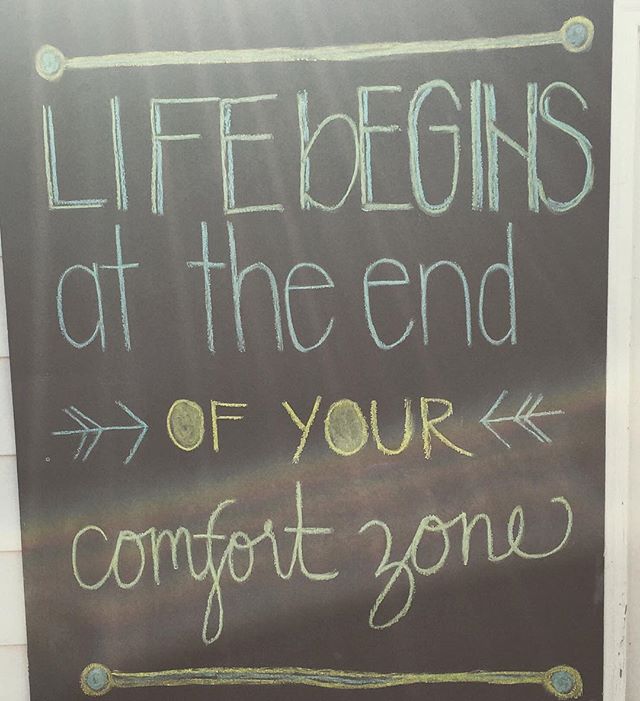 LIFE bEGINS
at the end
OF YOUR
comfort zone